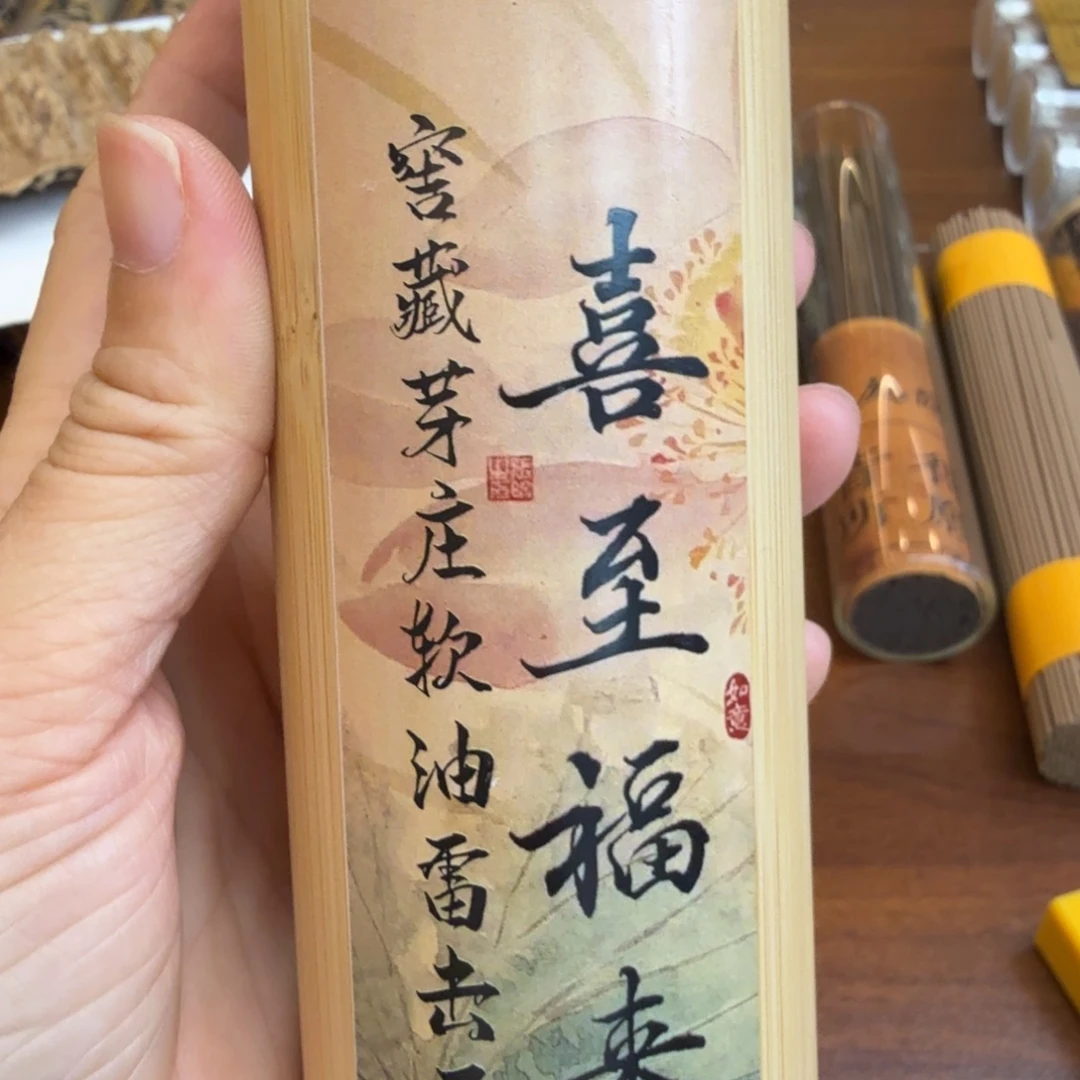 喜至福来
窖藏芽庄软油雷击
如意